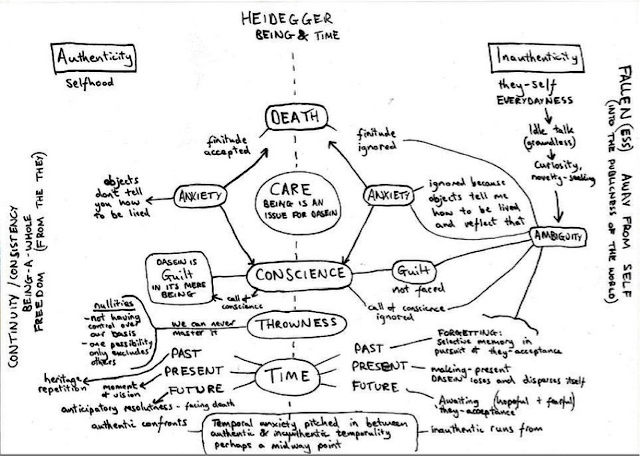 HEIDEGGER
BEING & TIME
Authenticity
Selfhood
Inauthenticity
they-self
EVERYDAYNESS
Idle talk
(groundless)
curiosity,
novelty-seeking
AMBIGUITY
FALLEN(ESS) AWAY FROM SELF
(INTO THE PUBLICNESS OF THE WORLD)
CONTINUITY/CONSISTENCY
BEING-A-WHOLE
FREEDOM (FROM THE THEY)
DEATH
finitude
accepted
finitude
ignored
objects
don't tell
you how
to be lived
ANXIETY
CARE
BEING IS AN
ISSUE FOR DASEIN
ANXIETY
ignored because
objects tell me
how to be lived
and reflect that
DASEIN IS
Guilt
IN ITS MERE
BEING
CONSCIENCE
Guilt
not faced
call of
conscience
call of conscience
ignored
nullities
- not having
control over
our basis
- one possibility
only excludes
others
we can never
master it
THROWNESS
PAST
PRESENT
FUTURE
TIME
PAST
PRESENT
FUTURE
heritage
repetition
moment
of vision
anticipatory resoluteness - facing death
FORGETTING:
Selective memory in
pursuit of they-acceptance
making-present
DASEIN loses and disperses itself
Awaiting (hopeful + fearful)
they-acceptance
authentic confronts
Temporal anxiety pitched in between
authentic & inauthentic temporality
perhaps a midway point
inauthentic runs from